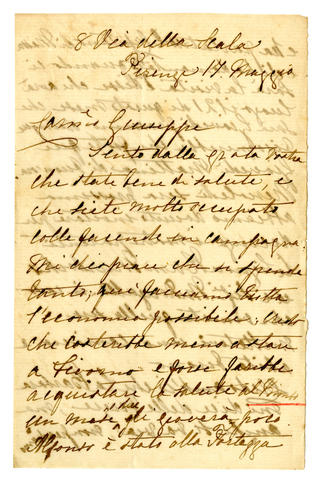 8 Via della Scala
Firenze 17 Maggio
Carno Giuseppe
Sento dalla grata vostra
che state bene di salute, e
che siete molto occupato
colle facende in campagna.
Mi dispiace che si spende
tanto; qui facciamo tutta
l'economia possibile; credo
che costerebbe meno a stare
a Livorno e forse farebbe
acquistare la salute al
un mese di
giovera poi.
Alfonso è stato alla Fortezza